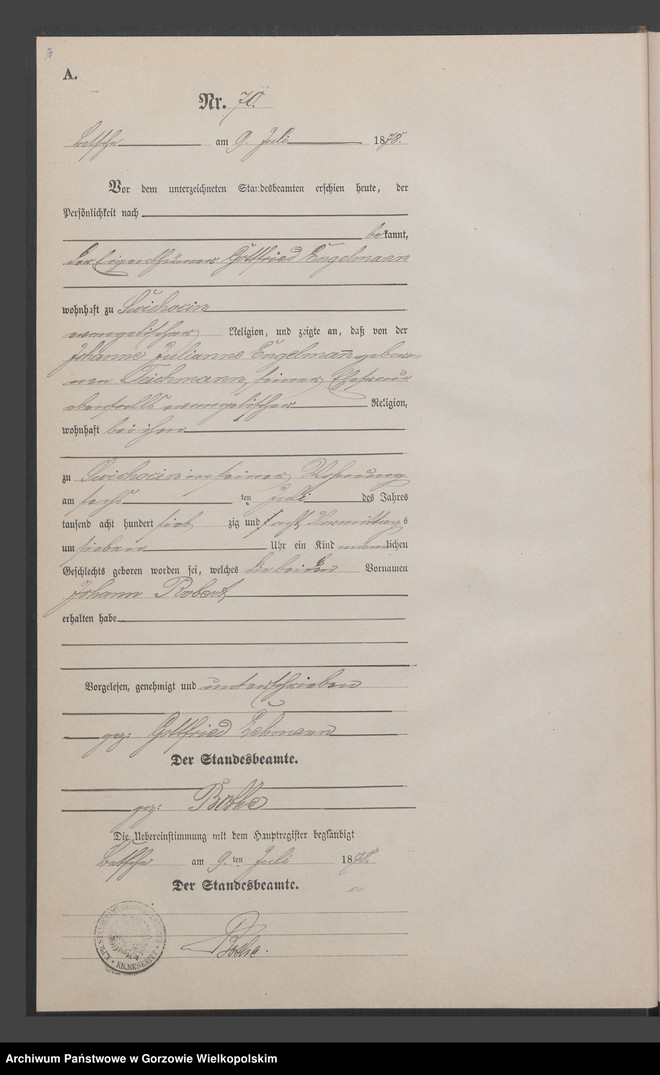 A.
Nr. 70.
Betsche am 9. Juli 1878.
Vor dem unterzeichneten Standesbeamten erschien heute, der
Persönlichkeit nach
bekannt,
der Eigenthümer Gottfried Engelmann
wohnhaft zu Swichocin
evangelischer Religion, und zeigte an, daß von der
Johanne Julianne Engelmann gebore-
nen Teichmann, seiner Ehefrau
ebenfalls evangelischer Religion,
wohnhaft bei ihm
zu Swichocin in seiner Wohnung
am sechs ten Juli des Jahres
tausend acht hundert sieb zig und acht Vormittags
um sieben Uhr ein Kind männlichen
Geschlechts geboren worden sei, welches die beiden Vornamen
Johann Robert
erhalten habe
Vorgelesen, genehmigt und unterschrieben
gez: Gottfried
Der Standesbeamte.
gez: Bothe
Die Uebereinstimmung mit dem Hauptregister beglaubigt
Betsche am 9. ten Juli 1878.
Der Standesbeamte.
Bothe.
KR. MESERITZ
Archiwum Państwowe w Gorzowie Wielkopolskim